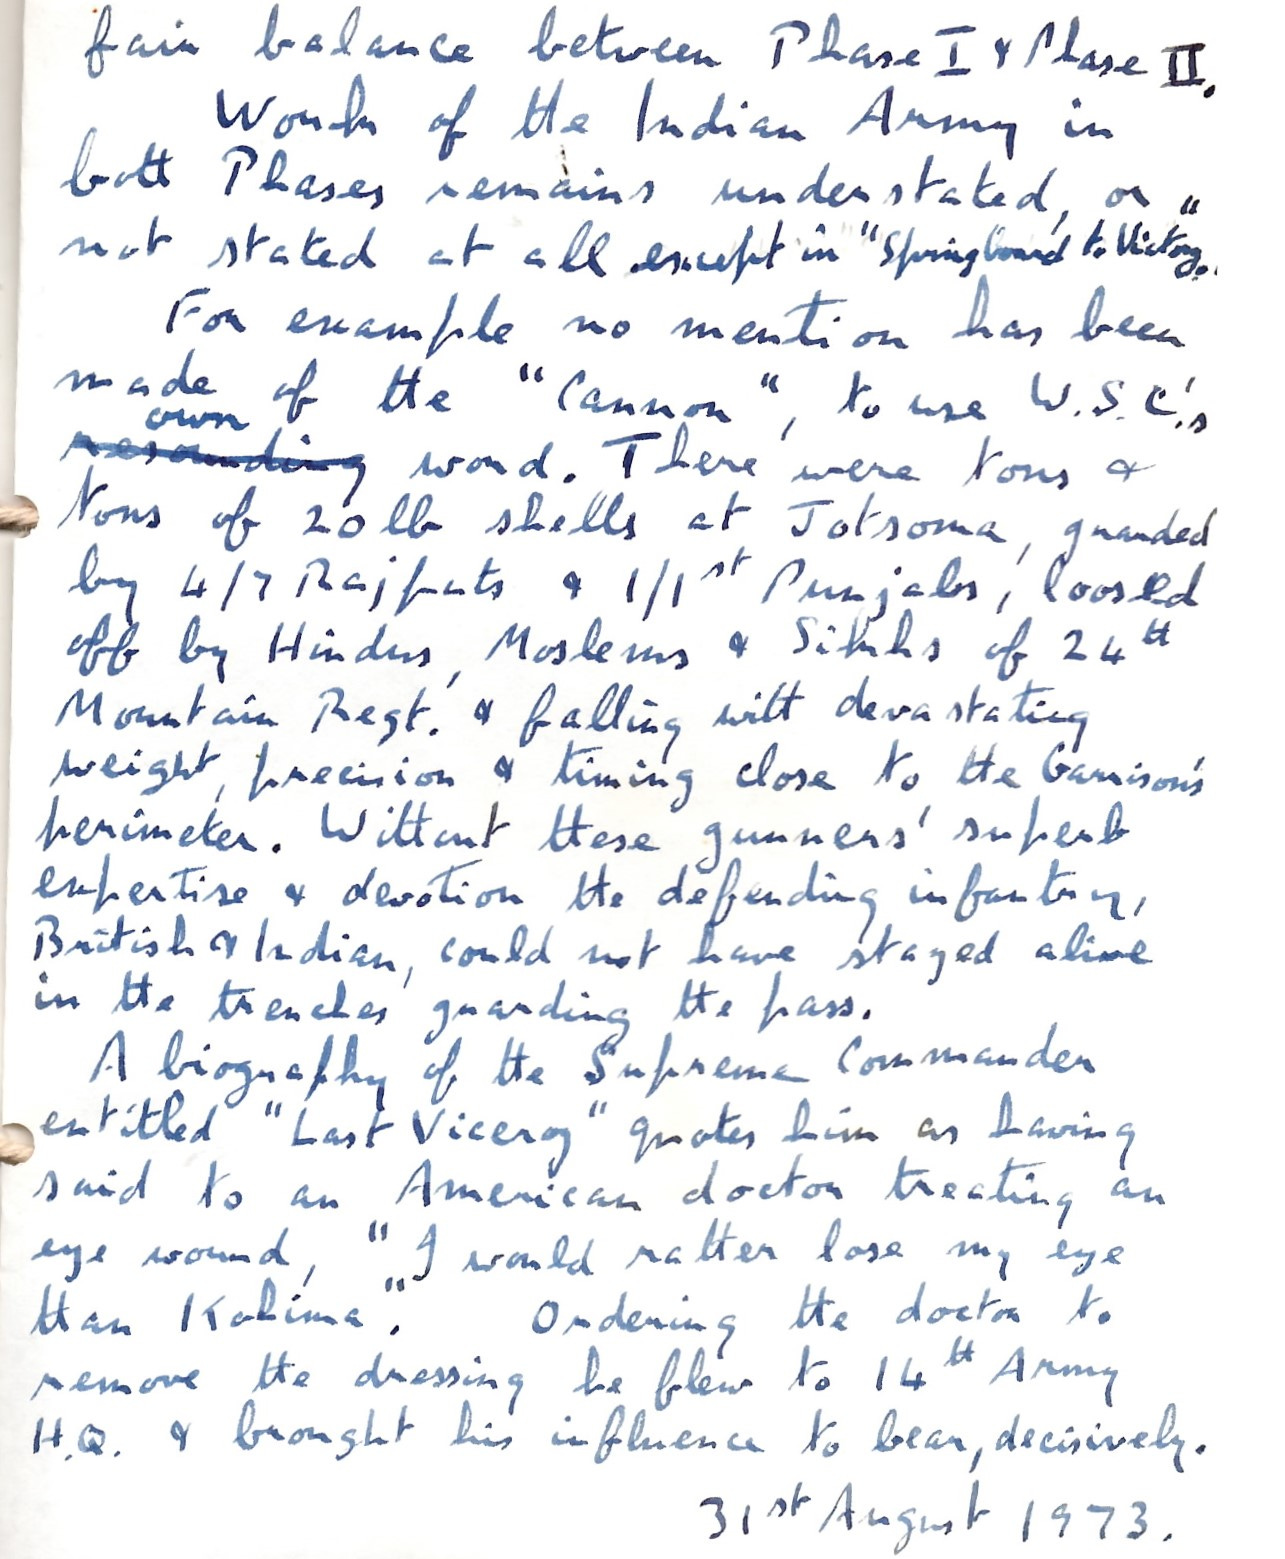 fair balance between Phase I & Phase II.
Work of the Indian Army in
both Phases remains understated, or
not stated at all except in "Springboard to Victory".
For example no mention has been
made of the "Cannon", to use W.S.C.'s
own
resounding word. There were tons &
tons of 20 lb shells at Jotsoma, guarded
by 4/7 Rajputs & 1/1st Punjabs, loosed
off by Hindus, Moslems & Sikhs of 24th
Mountain Regt. & falling with devastating
weight, precision & timing close to the Garrison's
perimeter. Without these gunners' superb
expertise & devotion the defending infantry,
British & Indian, could not have stayed alive
in the trenches guarding the pass.
A biography of the Supreme Commander
entitled "Last Viceroy" quotes him as having
said to an American doctor treating an
eye wound, "I would rather lose my eye
than Kohima". Ordering the doctor to
remove the dressing he flew to 14th Army
H.Q. & brought his influence to bear, decisively.
31st August 1973.